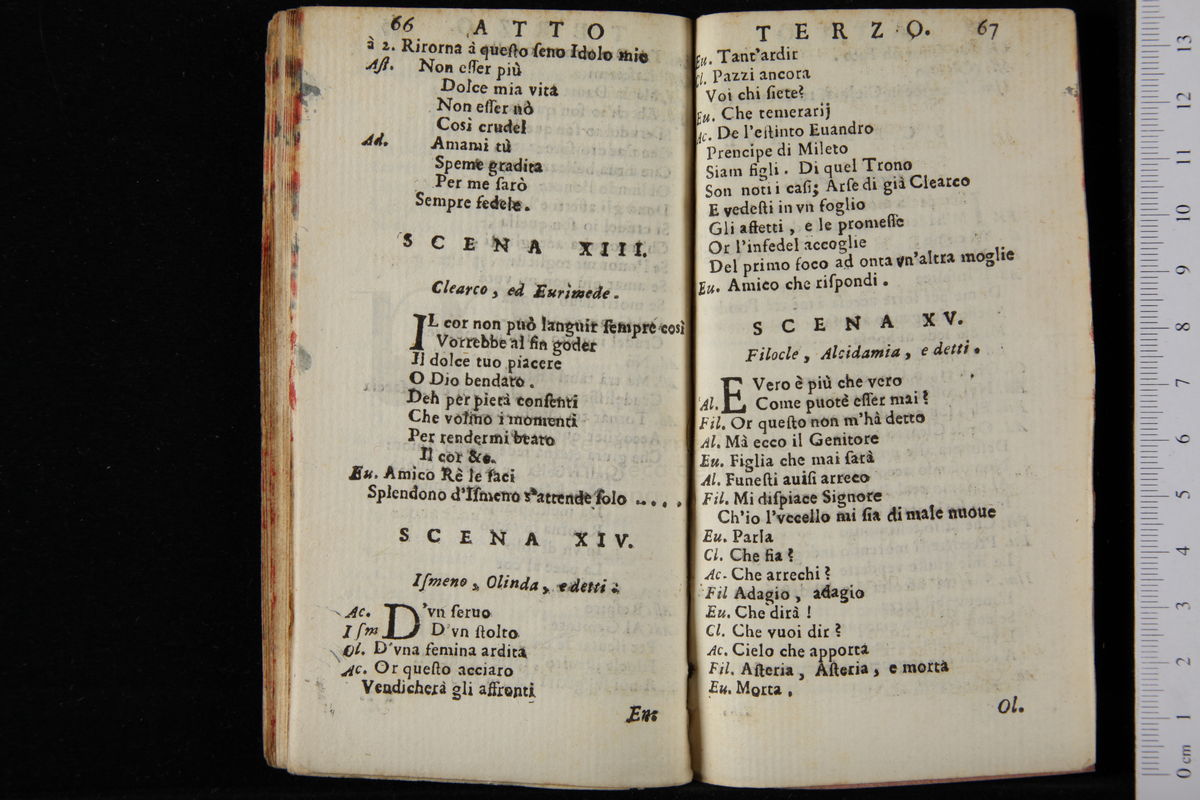 66 ATTO
à 2. Rirorna à queſto ſeno Idolo mio
Aſt. Non eſſer più
Dolce mia vita
Non eſſer nò
Così crudel
Ad. Amami tù
Speme gradita
Per me ſarò
Sempre fedele.
SCENA XIII.
Clearco, ed Eurimede.
IL cor non può languir ſempre così
Vorrebbe al fin goder
Il dolce tuo piacere
O Dio bendato.
Deh per pietà conſenti
Che volino i momenti
Per rendermi beato
Il cor &c.
Eu. Amico Rè le faci
Splendono d'Iſmeno s'attende ſolo .....
SCENA XIV.
Iſmeno, Olinda, e detti.
Ac. D'vn ſeruo
Iſm D'vn ſtolto
Ol. D'vna femina ardita
Ac. Or queſto acciaro
Vendicherà gli affronti
Eu.
TERZO. 67
Eu. Tant'ardir
Cl. Pazzi ancora
Voi chi ſiete?
Eu. Che temerarij
Ac. De l'eſtinto Euandro
Prencipe di Mileto
Siam figli. Di quel Trono
Son noti i caſi; Arſe di già Clearco
E vedeſti in vn foglio
Gli affetti, e le promeſſe
Or l'infedel accoglie
Del primo foco ad onta vn'altra moglie
Eu. Amico che riſpondi.
SCENA XV.
Filocle, Alcidamia, e detti.
E Vero è più che vero
Al. Come puotè eſſer mai?
Fil. Or queſto non m'hà detto
Al. Mà ecco il Genitore
Eu. Figlia che mai ſarà
Al. Funeſti auiſi arreco
Fil. Mi diſpiace Signore
Ch'io l'vccello mi ſia di male nuoue
Eu. Parla
Cl. Che fia?
Ac. Che arrechi?
Fil Adagio, adagio
Eu. Che dirà!
Cl. Che vuoi dir?
Ac. Cielo che apporta
Fil. Aſteria, Aſteria, e morta
Eu. Morta.
Ol.
13
12
11
10
9
8
7
6
5
4
3
2
1
0 cm